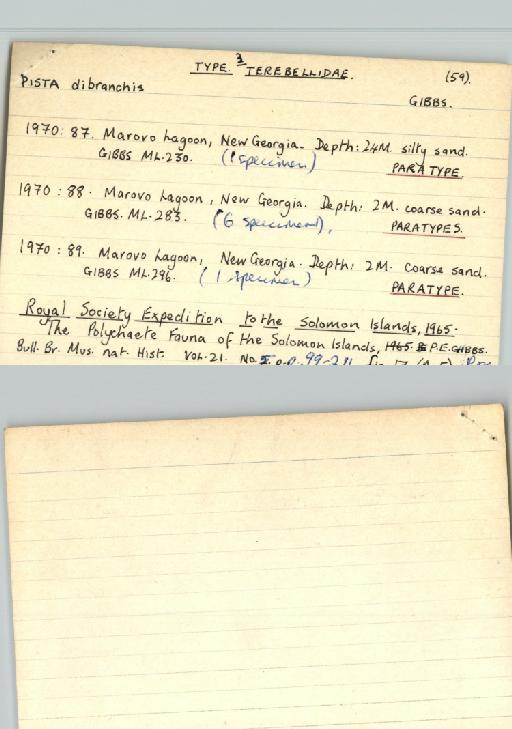 3
TYPE. TEREBELLIDAE. (59).
PISTA dibranchis
GIBBS.
1970: 87. Marovo Lagoon, New Georgia. Depth: 24M. silty sand.
GIBBS ML.230. (1 specimen) PARATYPE
1970: 88. Marovo Lagoon, New Georgia. Depth: 2M. coarse sand.
GIBBS. ML.283. (6 specimens), PARATYPES.
1970: 89. Marovo Lagoon, New Georgia. Depth: 2M. coarse sand.
GIBBS ML.296. (1 specimen) PARATYPE.
Royal Society Expedition to the Solomon Islands, 1965.
The Polychaete Fauna of the Solomon Islands, 1965. P.E. GIBBS.
Bull. Br. Mus. nat. Hist. Vol. 21. No. 5. p.p. 99-211